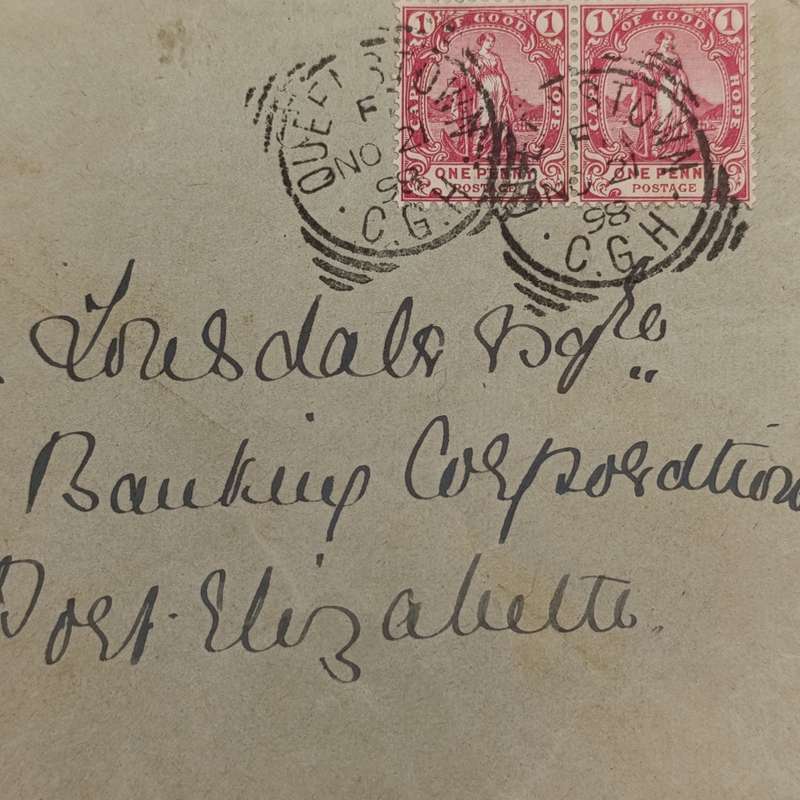 1 OF GOOD 1 1 OF GOOD 1
CAPE HOPE CAPE HOPE
ONE PENNY ONE PENNY
POSTAGE POSTAGE
QUEENSTOWN
NO
98
C.G.H.
QUEENSTOWN
NO
98
C.G.H.
Lonsdale Esqre
Banking Corporation
Port Elizabeth